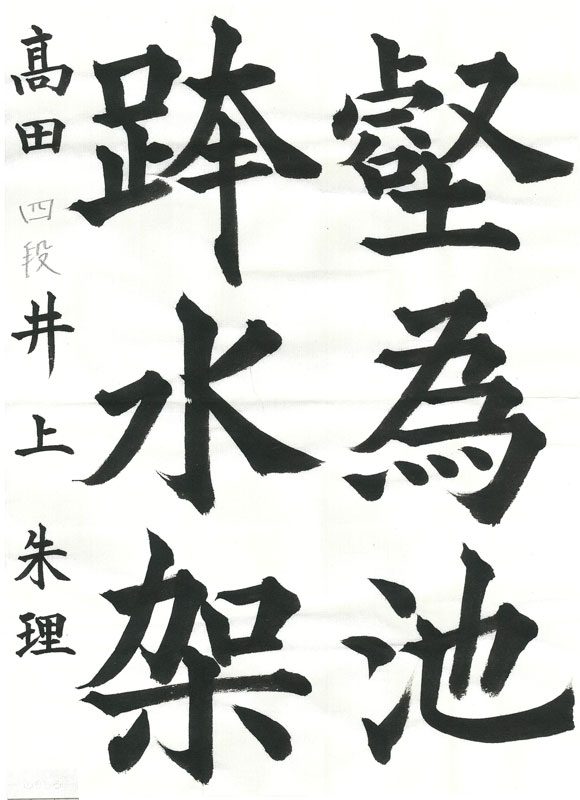 壑為池
跨水架
高田 四段 井上 朱理